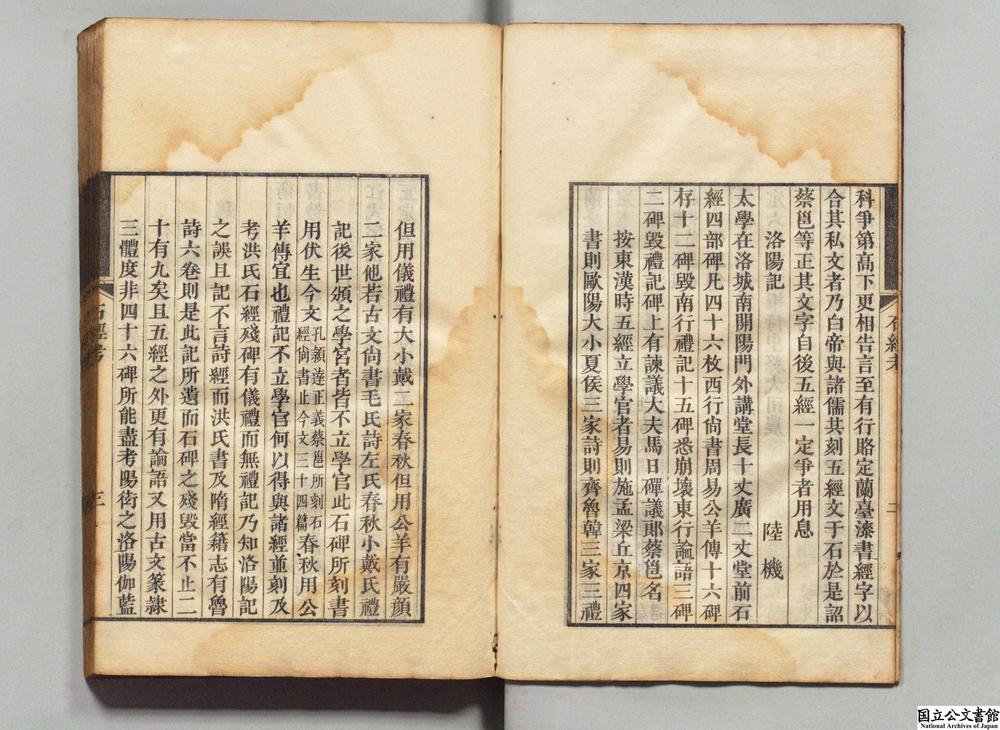 科爭第高下更相告言至有行賂定蘭臺漆書經字以
合其私文者乃白帝與諸儒共刻五經文于石於是詔
蔡邕等正其文字自後五經一定爭者用息
洛陽記 陸機
太學在洛城南開陽門外講堂長十丈廣二丈堂前石
經四部碑凡四十六枚西行尙書周易公羊傳十六碑
存十二碑毀南行禮記十五碑悉崩壞東行論語三碑
二碑毀禮記碑上有諫議大夫馬日磾議郎蔡邕名
按東漢時五經立學官者易則施孟梁丘京四家
書則歐陽大小夏侯三家詩則齊魯韓三家三禮
石經考
二
但用儀禮有大小戴二家春秋但用公羊有嚴顏
二家他若古文尙書毛氏詩左氏春秋小戴氏禮
記後世頒之學宮者皆不立學官此石碑所刻書
用伏生今文孔穎達正義蔡邕所刻石經尙書止今文三十四篇春秋用公
羊傳宜也禮記不立學官何以得與諸經並刻及
考洪氏石經殘碑有儀禮而無禮記乃知洛陽記
之誤且記不言詩經而洪氏書及隋經籍志有魯
詩六卷則是此記所遺而石碑之殘毀當不止二
十有九矣且五經之外更有論語又用古文篆隸
三體度非四十六碑所能盡考陽衒之洛陽伽藍
石經考
三
国立公文書館
National Archives of Japan